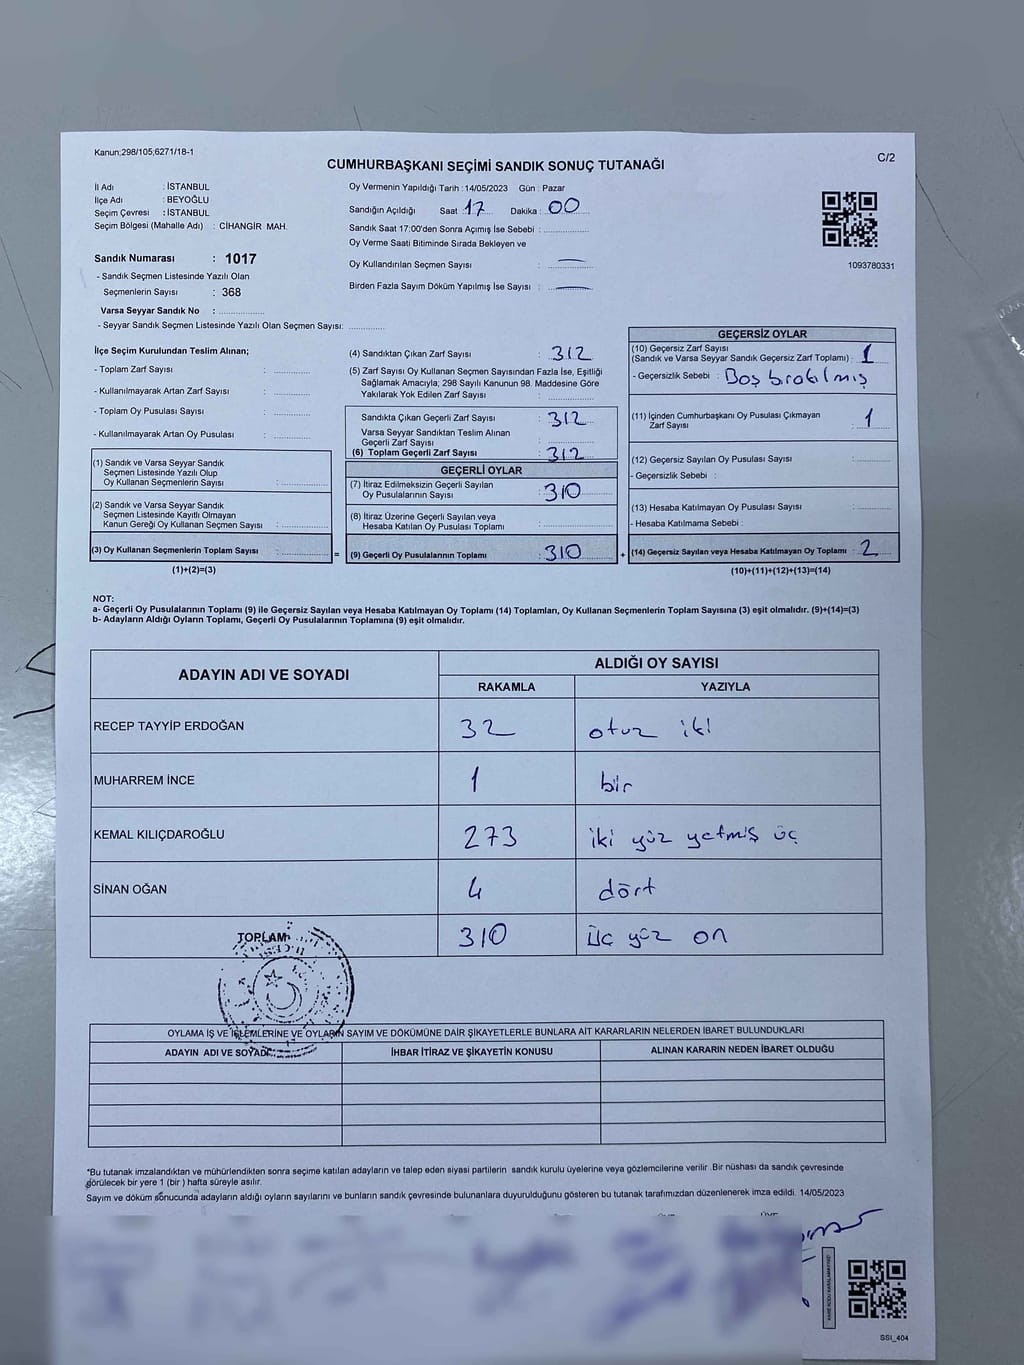 Kanun;298/105,6271/18-1
CUMHURBAŞKANI SEÇİMİ SANDIK SONUÇ TUTANAĞI
C/2
İl Adı : İSTANBUL
İlçe Adı : BEYOĞLU
Seçim Çevresi : İSTANBUL
Seçim Bölgesi (Mahalle Adı) : CİHANGİR MAH.
Sandık Numarası : 1017
- Sandık Seçmen Listesinde Yazılı Olan
Seçmenlerin Sayısı : 368
Varsa Seyyar Sandık No :
- Seyyar Sandık Seçmen Listesinde Yazılı Olan Seçmen Sayısı:
Oy Vermenin Yapıldığı Tarih : 14/05/2023 Gün : Pazar
Sandığın Açıldığı Saat 17 Dakika : 00
Sandık Saat 17:00'den Sonra Açımış İse Sebebi :
Oy Verme Saati Bitiminde Sırada Bekleyen ve
Oy Kullandırılan Seçmen Sayısı : —
Birden Fazla Sayım Döküm Yapılmış İse Sayısı : —
1093780331
İlçe Seçim Kurulundan Teslim Alınan;
- Toplam Zarf Sayısı :
- Kullanılmayarak Artan Zarf Sayısı :
- Toplam Oy Pusulası Sayısı :
- Kullanılmayarak Artan Oy Pusulası :
(1) Sandık ve Varsa Seyyar Sandık
Seçmen Listesinde Yazılı Olup
Oy Kullanan Seçmenlerin Sayısı :
(2) Sandık ve Varsa Seyyar Sandık
Seçmen Listesinde Kayıtlı Olmayan
Kanun Gereği Oy Kullanan Seçmen Sayısı :
(3) Oy Kullanan Seçmenlerin Toplam Sayısı :
(1)+(2)=(3)
(4) Sandıktan Çıkan Zarf Sayısı : 312
(5) Zarf Sayısı Oy Kullanan Seçmen Sayısından Fazla İse, Eşitliği
Sağlamak Amacıyla; 298 Sayılı Kanunun 98. Maddesine Göre
Yakılarak Yok Edilen Zarf Sayısı :
Sandıkta Çıkan Geçerli Zarf Sayısı : 312
Varsa Seyyar Sandıktan Teslim Alınan
Geçerli Zarf Sayısı :
(6) Toplam Geçerli Zarf Sayısı : 312
GEÇERLİ OYLAR
(7) İtiraz Edilmeksizin Geçerli Sayılan
Oy Pusulalarının Sayısı : 310
(8) İtiraz Üzerine Geçerli Sayılan veya
Hesaba Katılan Oy Pusulası Toplamı :
= (9) Geçerli Oy Pusulalarının Toplamı : 310
GEÇERSİZ OYLAR
(10) Geçersiz Zarf Sayısı
(Sandık ve Varsa Seyyar Sandık Geçersiz Zarf Toplamı) : 1
- Geçersizlik Sebebi : Boş bırakılmış
(11) İçinden Cumhurbaşkanı Oy Pusulası Çıkmayan
Zarf Sayısı : 1
(12) Geçersiz Sayılan Oy Pusulası Sayısı :
- Geçersizlik Sebebi :
(13) Hesaba Katılmayan Oy Pusulası Sayısı :
- Hesaba Katılmama Sebebi :
+ (14) Geçersiz Sayılan veya Hesaba Katılmayan Oy Toplamı : 2
(10)+(11)+(12)+(13)=(14)
NOT:
a- Geçerli Oy Pusulalarının Toplamı (9) ile Geçersiz Sayılan veya Hesaba Katılmayan Oy Toplamı (14) Toplamları, Oy Kullanan Seçmenlerin Toplam Sayısına (3) eşit olmalıdır. (9)+(14)=(3)
b- Adayların Aldığı Oyların Toplamı, Geçerli Oy Pusulalarının Toplamına (9) eşit olmalıdır.
ADAYIN ADI VE SOYADI
ALDIĞI OY SAYISI
RAKAMLA YAZIYLA
RECEP TAYYİP ERDOĞAN 32 otuz iki
MUHARREM İNCE 1 bir
KEMAL KILIÇDAROĞLU 273 iki yüz yetmiş üç
SİNAN OĞAN 4 dört
TOPLAM 310 üç yüz on
OYLAMA İŞ VE İŞLEMLERİNE VE OYLARIN SAYIM VE DÖKÜMÜNE DAİR ŞİKAYETLERLE BUNLARA AİT KARARLARIN NELERDEN İBARET BULUNDUKLARI
ADAYIN ADI VE SOYADI İHBAR İTİRAZ VE ŞİKAYETİN KONUSU ALINAN KARARIN NEDEN İBARET OLDUĞU
*Bu tutanak imzalandıktan ve mühürlendikten sonra seçime katılan adayların ve talep eden siyasi partilerin sandık kurulu üyelerine veya gözlemcilerine verilir .Bir nüshası da sandık çevresinde
görülecek bir yere 1 (bir ) hafta süreyle asılır.
Sayım ve döküm sonucunda adayların aldığı oyların sayılarını ve bunların sandık çevresinde bulunanlara duyurulduğunu gösteren bu tutanak tarafımızdan düzenlenerek imza edildi. 14/05/2023
SSI_404